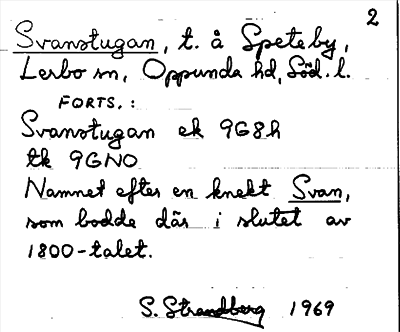 2
Svanstugan, t. å Speteby,
Lerbo sn, Oppunda hd, Söd. l.
FORTS.:
Svanstugan ek 9G8h
tk 9GNO
Namnet efter en knekt Svan,
som bodde där i slutet av
1800-talet.
S. Strandberg 1969